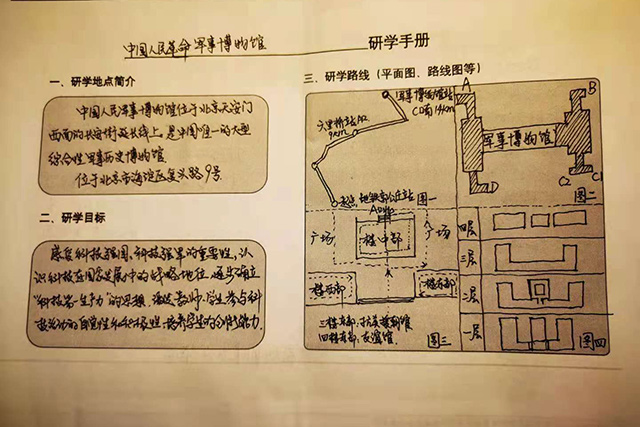 中国人民革命军事博物馆 研学手册
一、研学地点简介
中国人民军事博物馆位于北京天安门
西面的长安街延长线上，是中国唯一的大型
综合性军事历史博物馆
位于北京市海淀区复兴路9号
二、研学目标
感受科技强国，科技强军的重要性，认
识科技在国家发展中的战略地位，逐步确立
"科技第一生产力"的思想，激发教师、学生参与科
技活动的自觉性和积极性，培养学生的创新能力
三、研学路线（平面图、路线图等）
军事博物馆站
六里桥站A2
9km
起点
图一
A
B
军事博物馆
D
C2
C1
图二
广场
广场
楼中部
楼西部
楼东部
图三
四层
三层
二层
一层
图四